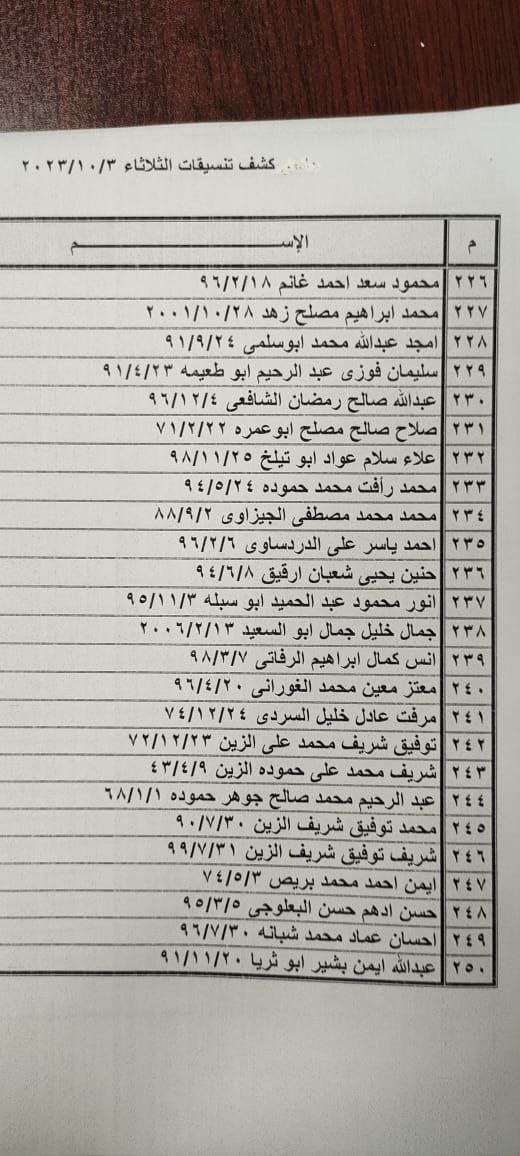 كشف تنسيقات الثلاثاء ٢٠٢٣/١٠/٣
م الإســـــــــــم
٢٢٦ محمود سعد احمد غانم ٩٦/٢/١٨
٢٢٧ محمد ابراهيم مصلح زهد ٢٠٠١/١٠/٢٨
٢٢٨ امجد عبدالله محمد ابوسلمى ٩١/٩/٢٤
٢٢٩ سليمان فوزى عبد الرحيم ابو طعيمه ٩١/٤/٢٣
٢٣٠ عبدالله صالح رمضان الشافعى ٩٦/١٢/٤
٢٣١ صلاح صالح مصلح ابوعمره ٧١/٢/٢٢
٢٣٢ علاء سلام عواد ابو تيلخ ٩٨/١١/٢٥
٢٣٣ محمد رأفت محمد حموده ٩٤/٥/٢٤
٢٣٤ محمد محمد مصطفى الجيزاوى ٨٨/٩/٢
٢٣٥ احمد ياسر على الدردساوى ٩٦/٢/٦
٢٣٦ حنين يحيى شعبان ارقيق ٩٤/٦/٨
٢٣٧ انور محمود عبد الحميد ابو سبله ٩٥/١١/٣
٢٣٨ جمال خليل جمال ابو السعيد ٢٠٠٦/٢/١٣
٢٣٩ انس كمال ابراهيم الرفاتى ٩٨/٣/٧
٢٤٠ معتز معين محمد الغورانى ٩٦/٤/٢٠
٢٤١ مرفت عادل خليل السردى ٧٤/١٢/٢٤
٢٤٢ توفيق شريف محمد على الزين ٧٢/١٢/٢٣
٢٤٣ شريف محمد على حموده الزين ٤٣/٤/٩
٢٤٤ عبد الرحيم محمد صالح جوهر حموده ٦٨/١/١
٢٤٥ محمد توفيق شريف الزين ٩٠/٧/٣٠
٢٤٦ شريف توفيق شريف الزين ٩٩/٧/٣١
٢٤٧ ايمن احمد محمد بريص ٧٤/٥/٣
٢٤٨ حسن ادهم حسن البعلوجى ٩٥/٣/٥
٢٤٩ احسان عماد محمد شبانه ٩٦/٧/٣٠
٢٥٠ عبدالله ايمن بشير ابو ثريا ٩١/١١/٢٠